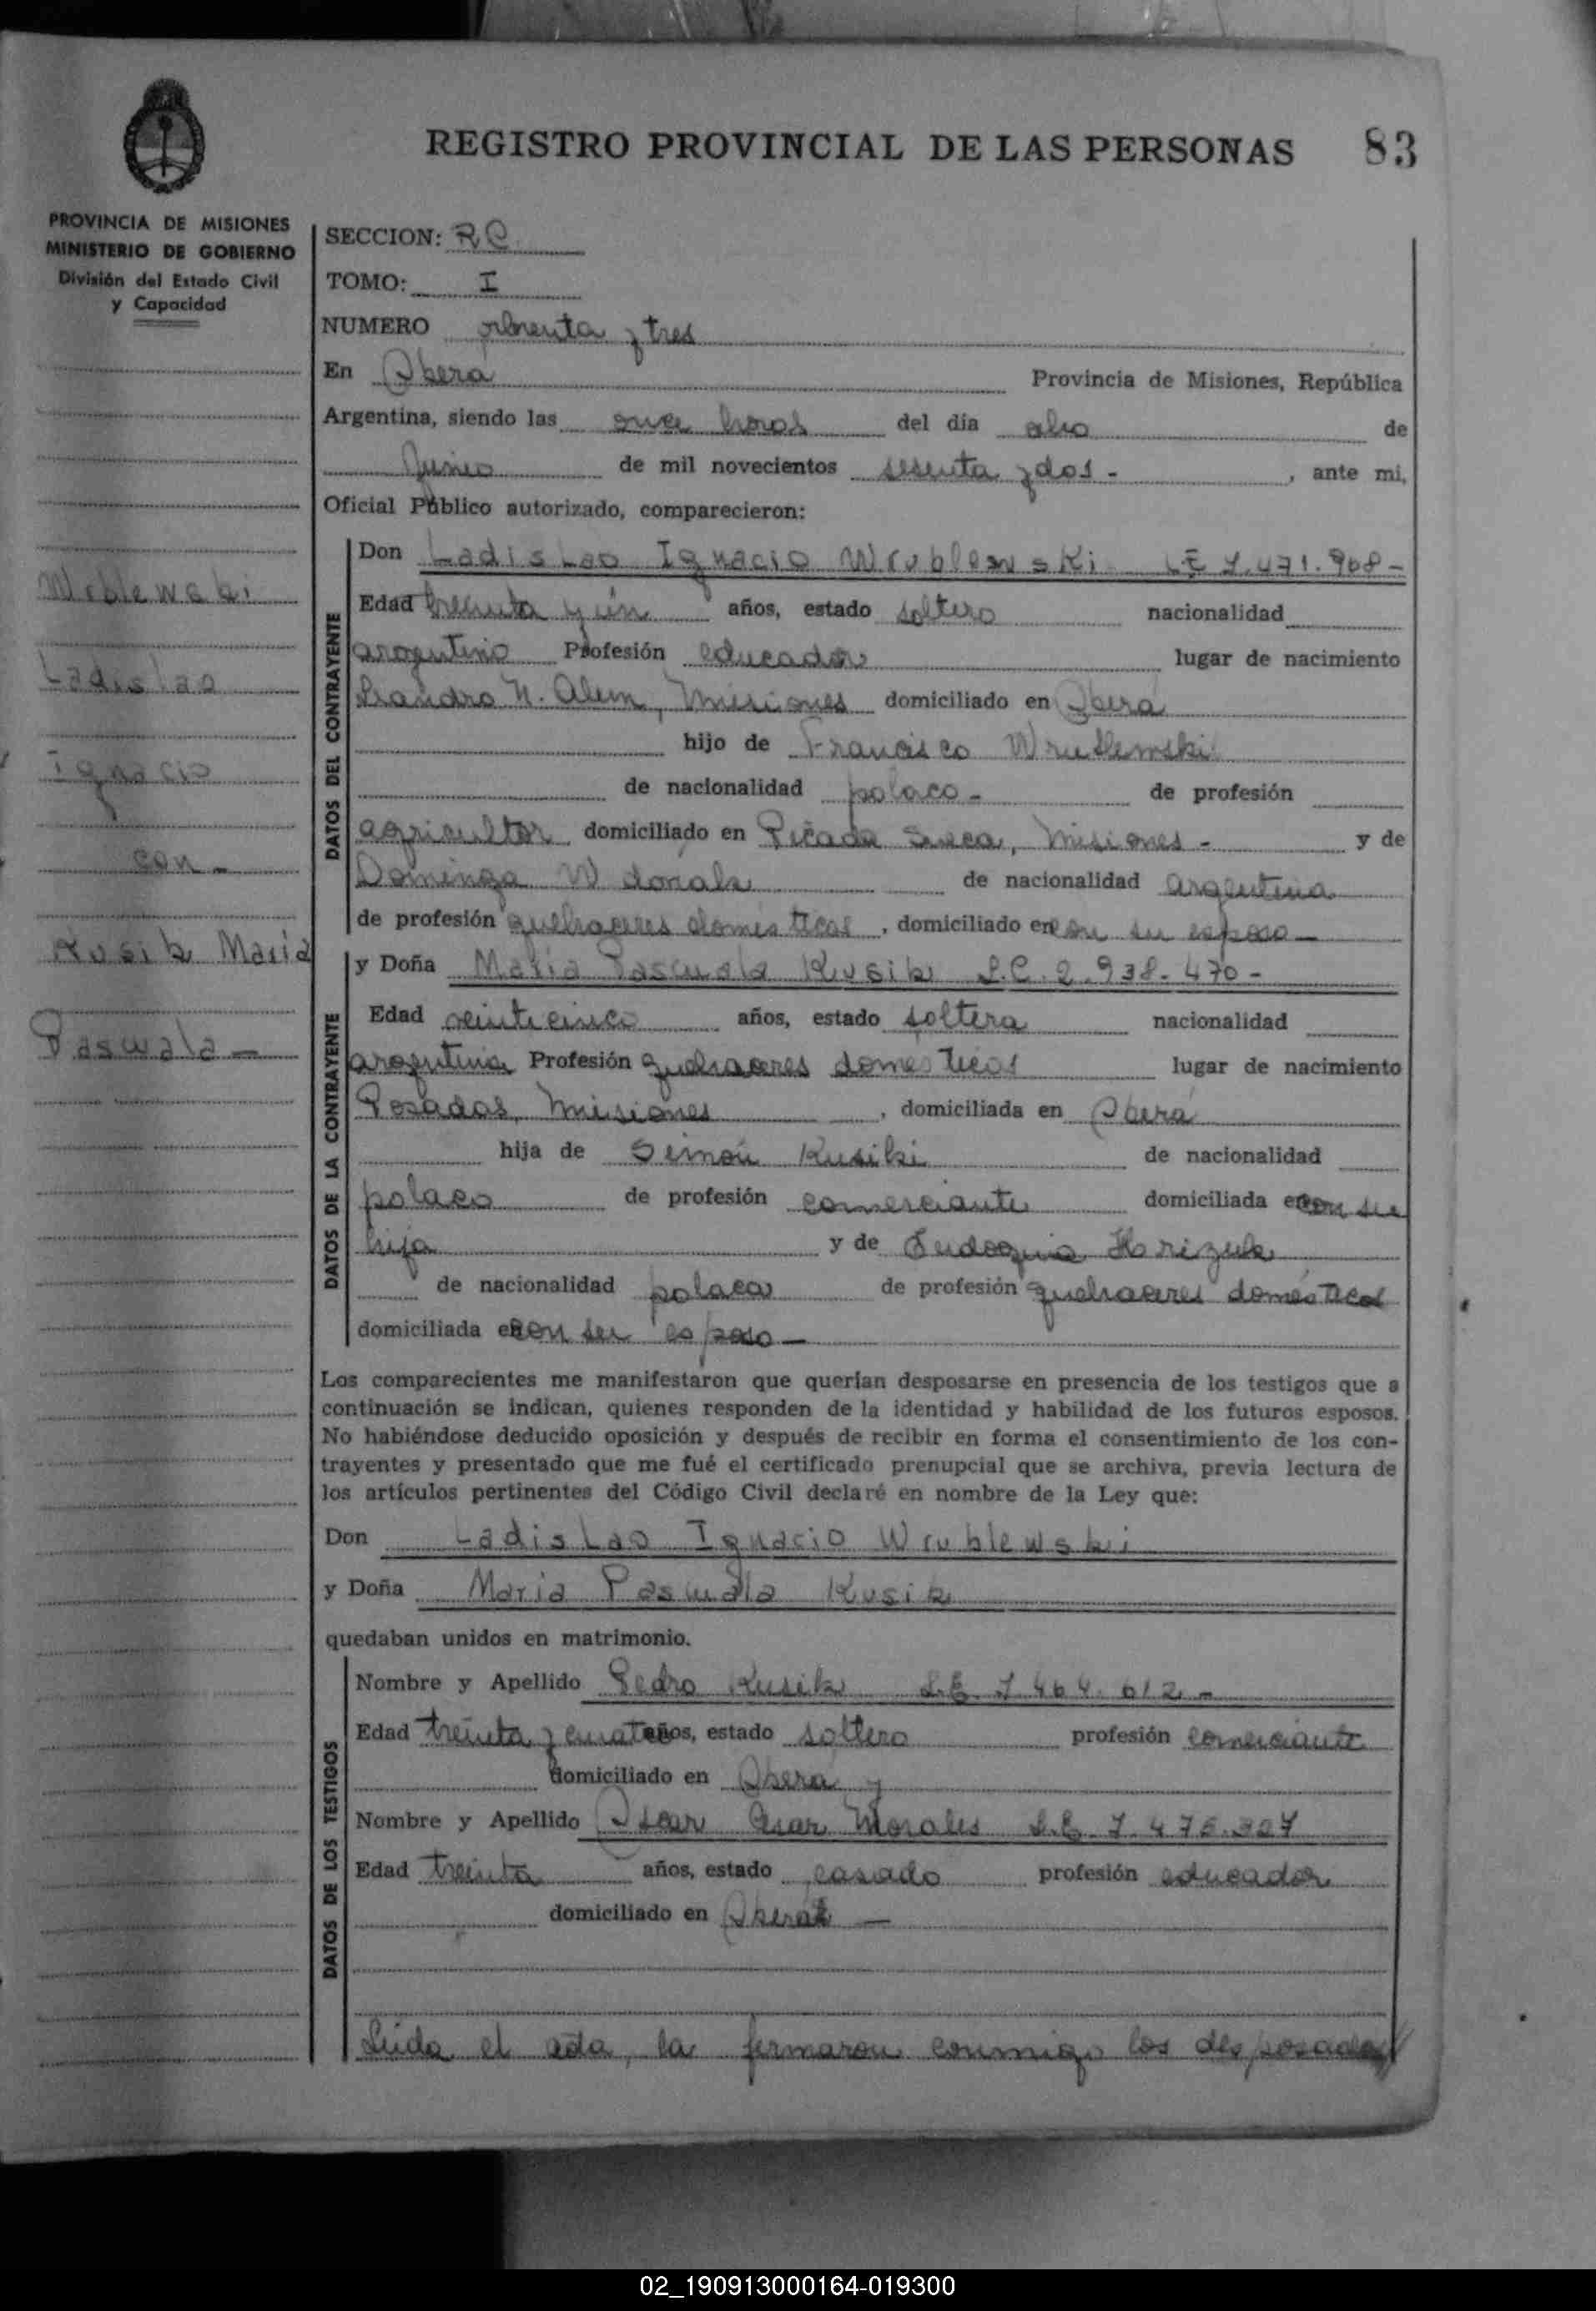 REGISTRO PROVINCIAL DE LAS PERSONAS 83
PROVINCIA DE MISIONES
MINISTERIO DE GOBIERNO
División del Estado Civil
y Capacidad
Wrblewski
Ladislao
Ignacio
con -
Kusik Maria
Pascuala -
SECCION: RC
TOMO: I
NUMERO ochenta y tres
En Oberá Provincia de Misiones, República
Argentina, siendo las once horas del día ocho de
Junio de mil novecientos sesenta y dos - , ante mi,
Oficial Público autorizado, comparecieron:
DATOS DEL CONTRAYENTE
Don Ladislao Ignacio Wrublewski LE 7.471.968 -
Edad treinta y ún años, estado soltero nacionalidad
argentino Profesión educador lugar de nacimiento
Leandro N. Alem, Misiones domiciliado en Oberá
hijo de Francisco Wrublewski
de nacionalidad polaco - de profesión
agricultor domiciliado en Picada Sueca, Misiones - y de
Dominga de nacionalidad argentina
de profesión quehaceres domésticos , domiciliado en con su esposo -
DATOS DE LA CONTRAYENTE
y Doña Maria Pascuala Kusik L.C. 2.938.470 -
Edad veinticinco años, estado soltera nacionalidad
argentina Profesión quehaceres domesticos lugar de nacimiento
Posadas, Misiones , domiciliada en Oberá
hija de Simón Kusiki de nacionalidad
polaco de profesión comerciante domiciliada en con su
hija y de Eudoquia
de nacionalidad polaca de profesión quehaceres domésticos
domiciliada en con su esposo -
Los comparecientes me manifestaron que querían desposarse en presencia de los testigos que a
continuación se indican, quienes responden de la identidad y habilidad de los futuros esposos.
No habiéndose deducido oposición y después de recibir en forma el consentimiento de los con-
trayentes y presentado que me fué el certificado prenupcial que se archiva, previa lectura de
los artículos pertinentes del Código Civil declaré en nombre de la Ley que:
Don Ladislao Ignacio Wrublewski
y Doña Maria Pascuala Kusik
quedaban unidos en matrimonio.
DATOS DE LOS TESTIGOS
Nombre y Apellido Pedro Kusik L.E. 7.464.612 -
Edad treinta y cuatro años, estado soltero profesión comerciante
domiciliado en Oberá y
Nombre y Apellido Oscar Cesar Morales L.E. 7.476.327
Edad treinta años, estado casado profesión educador
domiciliado en Oberá -
Leida el acta, la firmaron conmigo los desposados
02_190913000164-019300